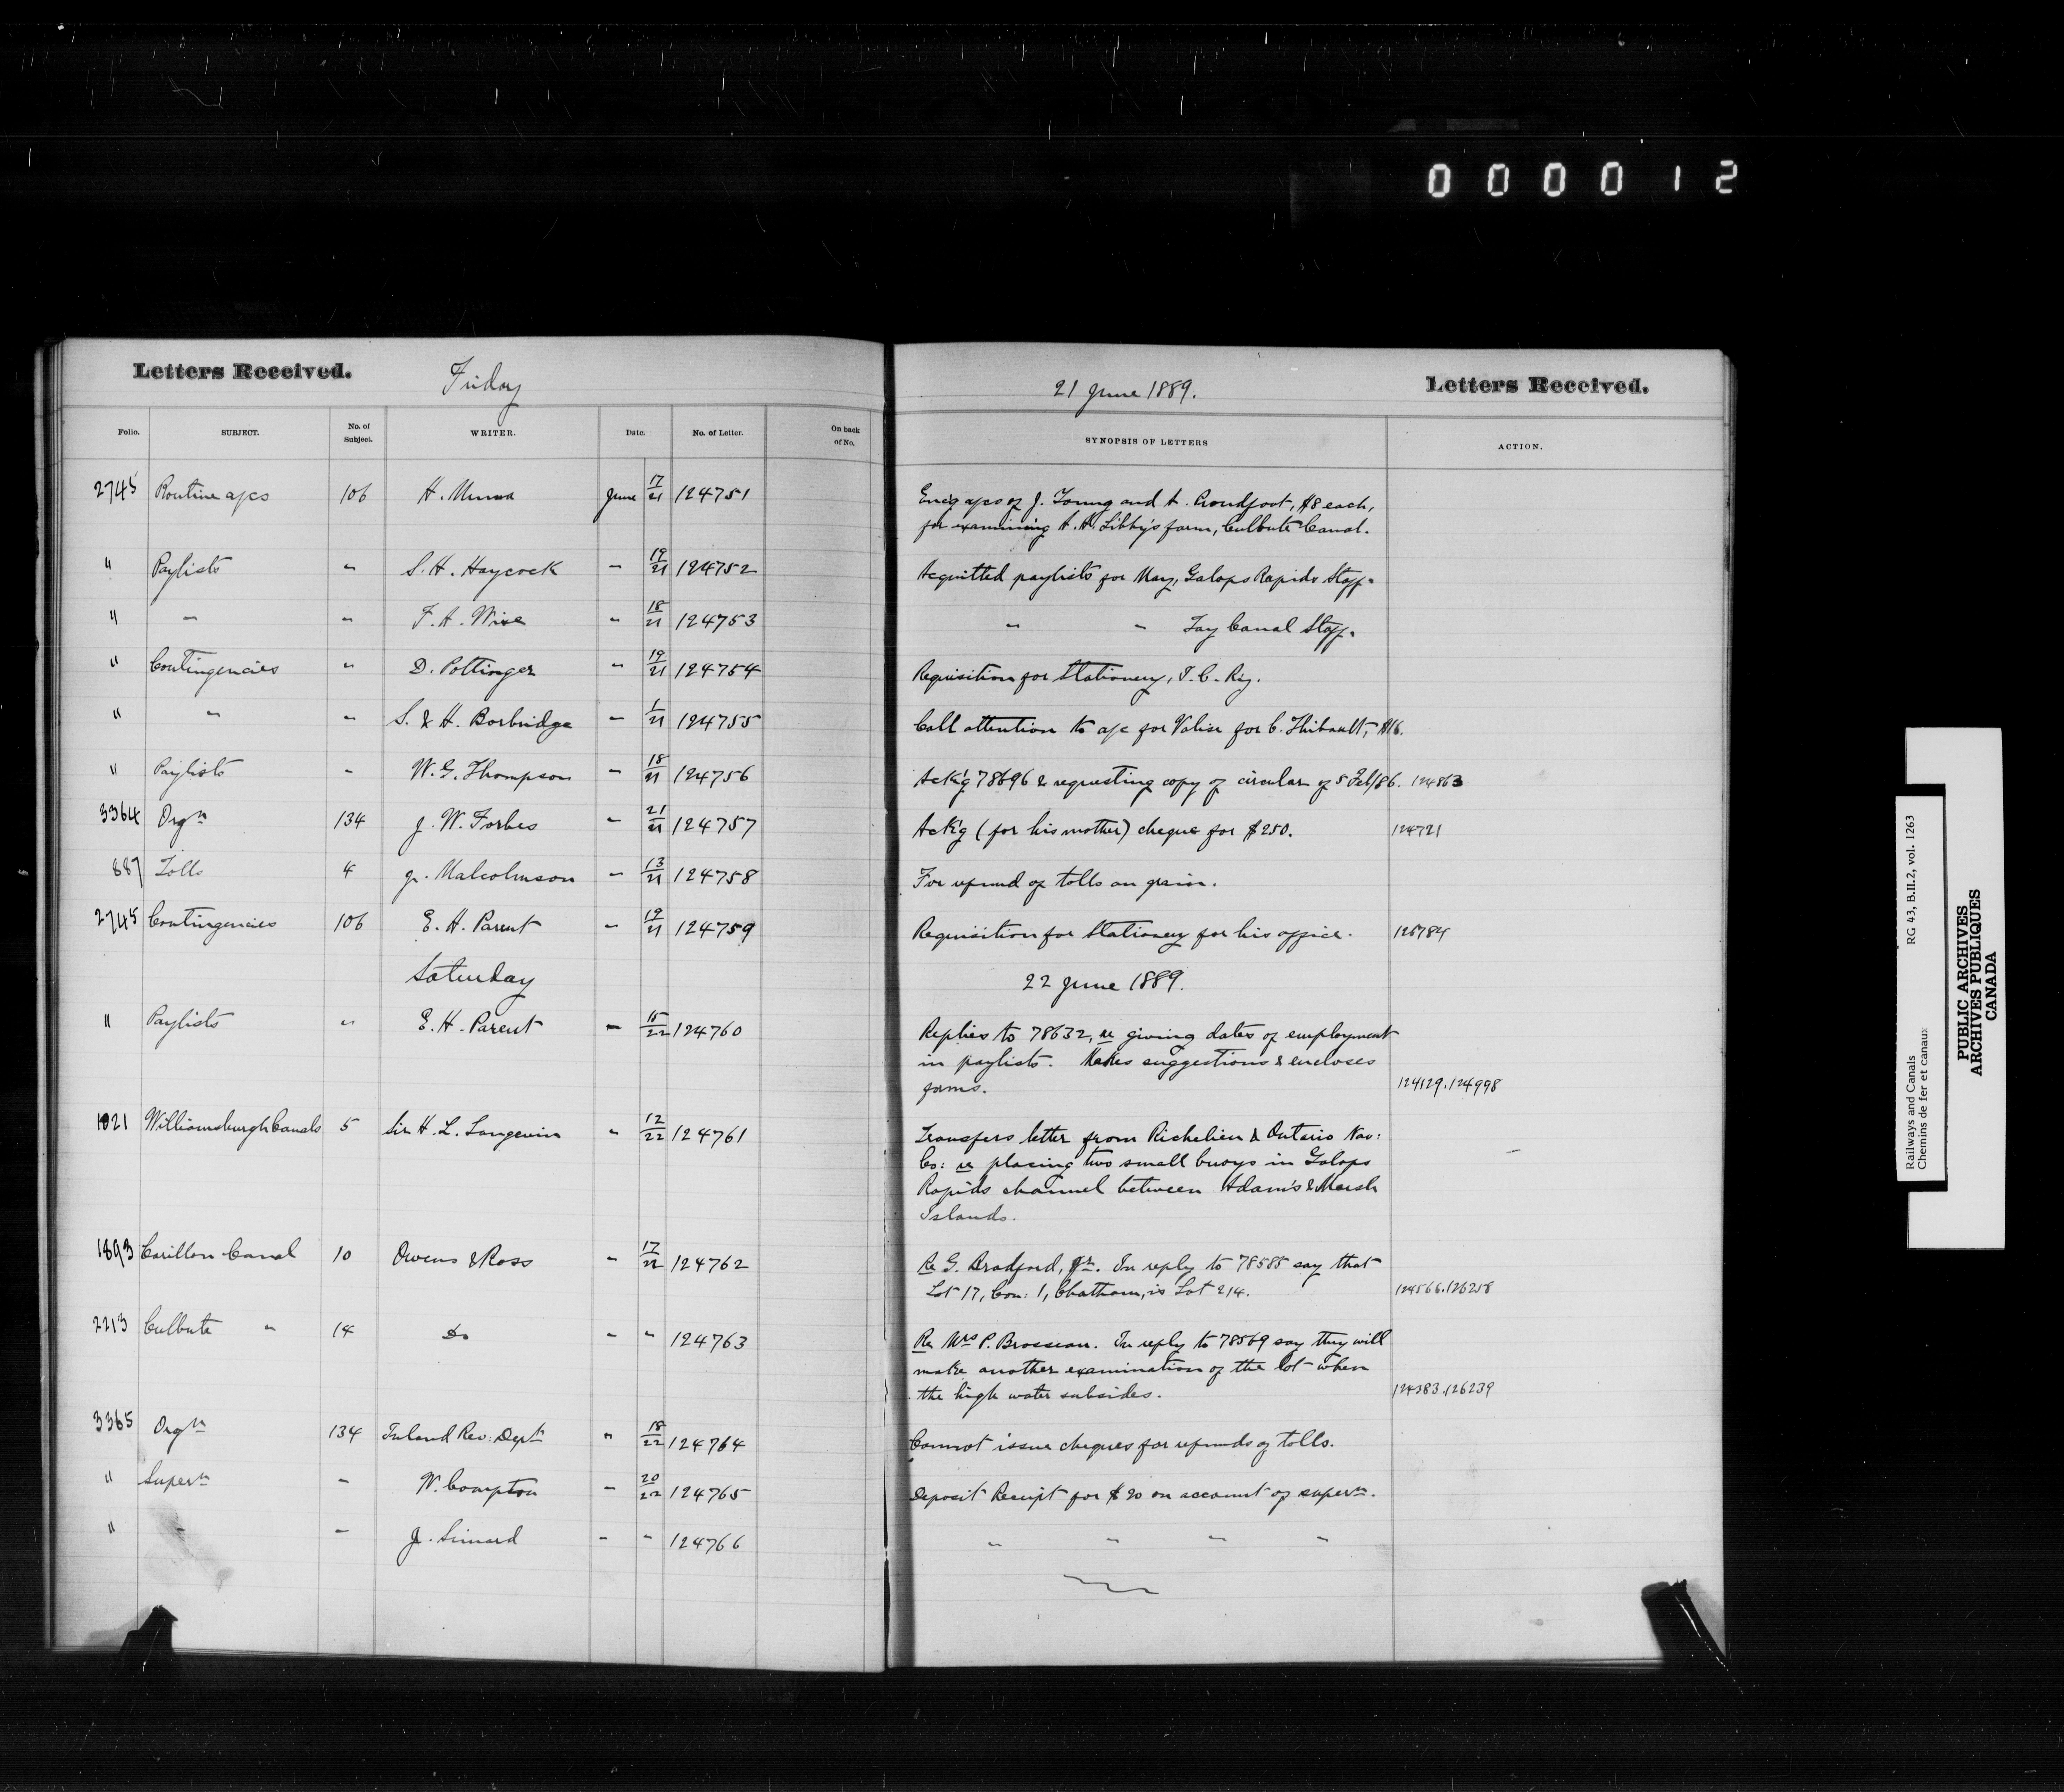 000012
Letters Received. Friday 21 June 1889. Letters Received.
Folio. SUBJECT. No. of Subject. WRITER. Date. No. of Letter. On back of No. SYNOPSIS OF LETTERS ACTION.
2745 Routine a/cs 106 H. June 17/21 124751 Enc'g a/cs of J. Young and A. Proudfoot, $8 each,
for examining A. H. Libby's farm, Culbute Canal.
" Paylists " S. H. Haycock " 19/21 124752 Acquitted paylists for May, Galops Rapids Staff.
" " " F. A. Wise " 18/21 124753 " " Tay Canal Staff.
" Contingencies " D. Pottinger " 19/21 124754 Requisition for Stationery, I. C. Ry.
" " " S. & H. Borbridge " 1/21 124755 Call attention to a/c for Valise for C. Thibault, $16.
" Paylists " W. G. Thompson " 18/21 124756 Ack'g 78696 & requesting copy of circular of 5 Feb/86. 124863
3364 Orgn 134 J. W. Forbes " 21/21 124757 Ack'g (for his mother) cheque for $250. 124721
887 Tolls 4 J. Malcolmson " 13/21 124758 For refund of tolls on grain.
2745 Contingencies 106 E. H. Parent " 19/21 124759 Requisition for Stationery for his office. 125784
Saturday 22 June 1889.
" Paylists " E. H. Parent " 15/22 124760 Replies to 78632, re giving dates of employment
in paylists. Makes suggestions & encloses
forms. 124129.124998
1021 Williamsburgh Canals 5 Sir H. L. Langevin " 12/22 124761 Transfers letter from Richelieu & Ontario Nav:
Co: re placing two small buoys in Galops
Rapids channel between Adam's & Marsh
Islands.
1893 Carillon Canal 10 Owens & Ross " 17/22 124762 Re G. Bradford, Jr. In reply to 78585 say that
Lot 17, Con: 1, Chatham, is Lot 214. 124566.126258
2213 Culbute " 14 Do " " 124763 Re Mrs P. Brosseau. In reply to 78569 say they will
make another examination of the lot when
the high water subsides. 124383.126239
3365 Orgn 134 Inland Rev: Dept " 18/22 124764 Cannot issue cheques for refunds of tolls.
" Supern " W. Compton " 20/22 124765 Deposit Receipt for $20 on account of supern.
" " " J. Simard " " 124766 " " " "
Railways and Canals RG 43, B.II.2, vol. 1263
Chemins de fer et canaux
PUBLIC ARCHIVES
ARCHIVES PUBLIQUES
CANADA